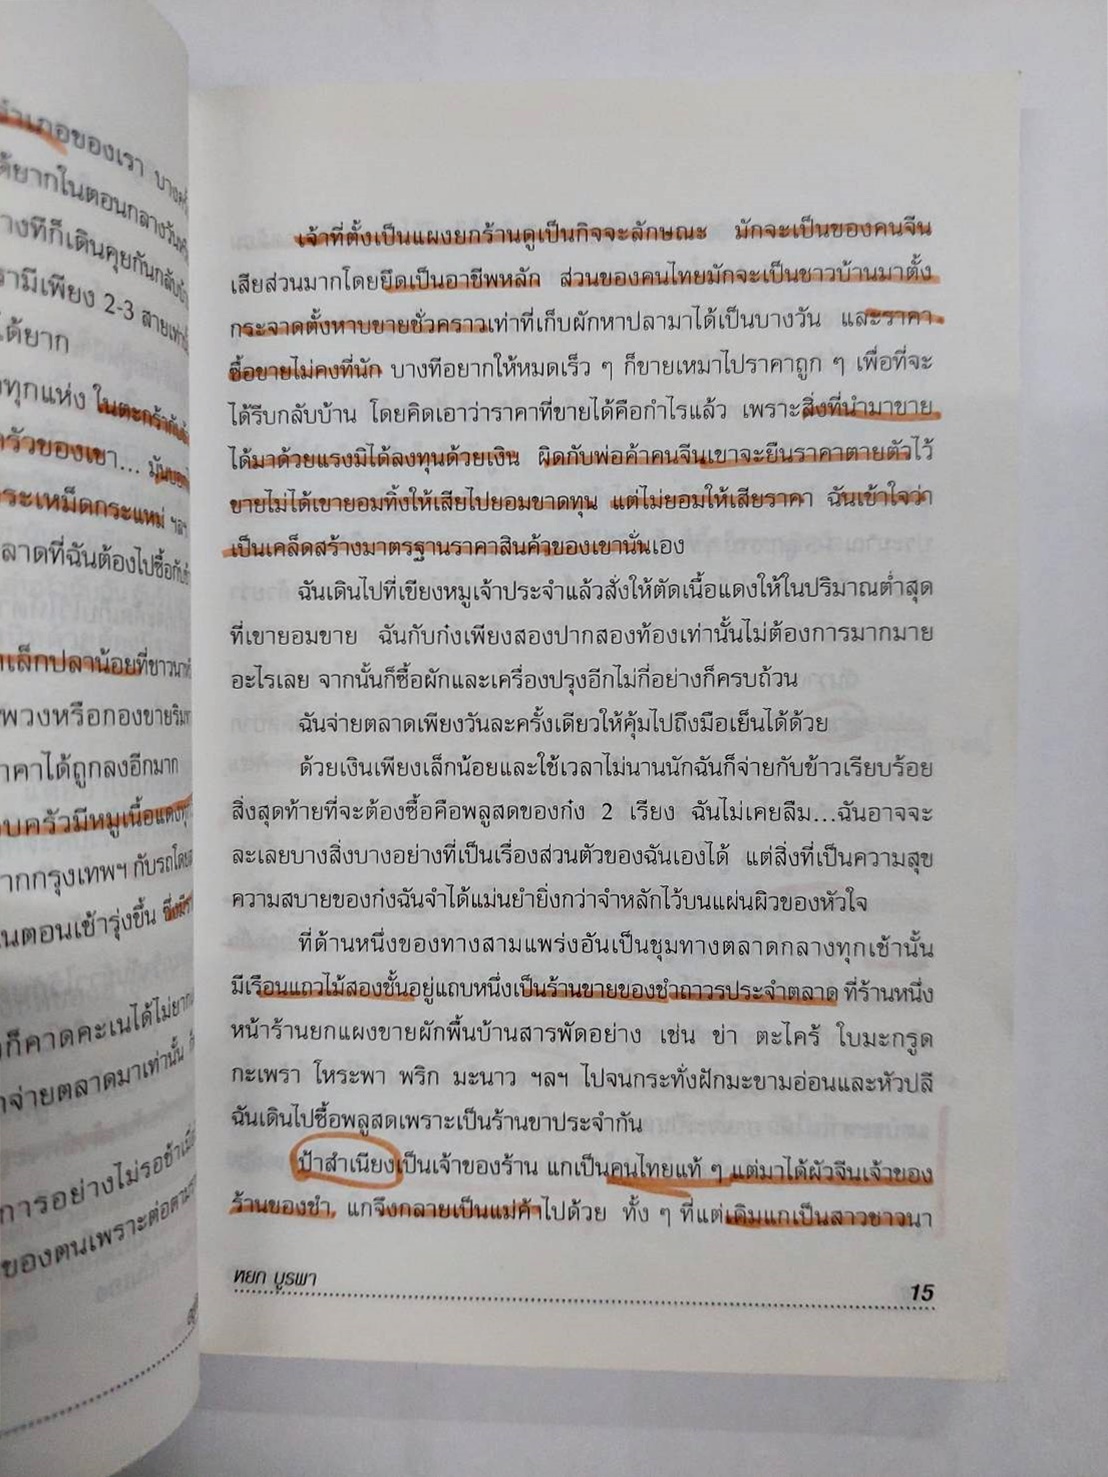 อำเภอของเรา บางครั้ง
ได้ยากในตอนกลางวัน
างทีก็เดินคุยกันกลับบ้าน
รามีเพียง 2-3 สายเท่านั้น
ได้ยาก
ทุกแห่ง ในตะกร้ากับ
ครัวของเขา... มัน
กระเหม็ดกระแหม่ ฯลฯ
ลาดที่ฉันต้องไปซื้อกับข้าว
เล็กปลาน้อยที่ชาวนา
พวงหรือกองขายริม
าคาได้ถูกลงอีกมาก
บครัวมีหมูเนื้อแดง
ากกรุงเทพฯ กับรถโดย
นตอนเช้ารุ่งขึ้น
ก็คาดคะเนได้ไม่ยาก
จ่ายตลาดมาเท่านั้น
การอย่างไม่รอช้า
ของตนเพราะต่อตาม
เจ้าที่ตั้งเป็นแผงยกร้านดูเป็นกิจจะลักษณะ มักจะเป็นของคนจีน
เสียส่วนมากโดยยึดเป็นอาชีพหลัก ส่วนของคนไทยมักจะเป็นชาวบ้านมาตั้ง
กระจาดตั้งหาบขายชั่วคราวเท่าที่เก็บผักหาปลามาได้เป็นบางวัน และราคา
ซื้อขายไม่คงที่นัก บางทีอยากให้หมดเร็ว ๆ ก็ขายเหมาไปราคาถูก ๆ เพื่อที่จะ
ได้รีบกลับบ้าน โดยคิดเอาว่าราคาที่ขายได้คือกำไรแล้ว เพราะสิ่งที่นำมาขาย
ได้มาด้วยแรงมิได้ลงทุนด้วยเงิน ผิดกับพ่อค้าคนจีนเขาจะยืนราคาตายตัวไว้
ขายไม่ได้เขายอมทิ้งให้เสียไปยอมขาดทุน แต่ไม่ยอมให้เสียราคา ฉันเข้าใจว่า
เป็นเคล็ดสร้างมาตรฐานราคาสินค้าของเขานั่นเอง
ฉันเดินไปที่เขียงหมูเจ้าประจำแล้วสั่งให้ตัดเนื้อแดงให้ในปริมาณต่ำสุด
ที่เขายอมขาย ฉันกับก๋งเพียงสองปากสองท้องเท่านั้นไม่ต้องการมากมาย
อะไรเลย จากนั้นก็ซื้อผักและเครื่องปรุงอีกไม่กี่อย่างก็ครบถ้วน
ฉันจ่ายตลาดเพียงวันละครั้งเดียวให้คุ้มไปถึงมือเย็นได้ด้วย
ด้วยเงินเพียงเล็กน้อยและใช้เวลาไม่นานนักฉันก็จ่ายกับข้าวเรียบร้อย
สิ่งสุดท้ายที่จะต้องซื้อคือพลูสดของก๋ง 2 เรียง ฉันไม่เคยลืม...ฉันอาจจะ
ละเลยบางสิ่งบางอย่างที่เป็นเรื่องส่วนตัวของฉันเองได้ แต่สิ่งที่เป็นความสุข
ความสบายของก๋งฉันจำได้แม่นยำยิ่งกว่าจำหลักไว้บนแผ่นผิวของหัวใจ
ที่ด้านหนึ่งของทางสามแพร่งอันเป็นชุมทางตลาดกลางทุกเช้านั้น
มีเรือนแถวไม้สองชั้นอยู่แถบหนึ่งเป็นร้านขายของชำถาวรประจำตลาด ที่ร้านหนึ่ง
หน้าร้านยกแผงขายผักพื้นบ้านสารพัดอย่าง เช่น ข่า ตะไคร้ ใบมะกรูด
กะเพรา โหระพา พริก มะนาว ฯลฯ ไปจนกระทั่งฝักมะขามอ่อนและหัวปลี
ฉันเดินไปซื้อพลูสดเพราะเป็นร้านขาประจำกัน
ป้าสำเนียงเป็นเจ้าของร้าน แกเป็นคนไทยแท้ ๆ แต่มาได้ผัวจีนเจ้าของ
ร้านของชำ แกจึงกลายเป็นแม่ค้าไปด้วย ทั้ง ๆ ที่แต่เดิมแกเป็นสาวชาวนา
หยก บูรพา
15